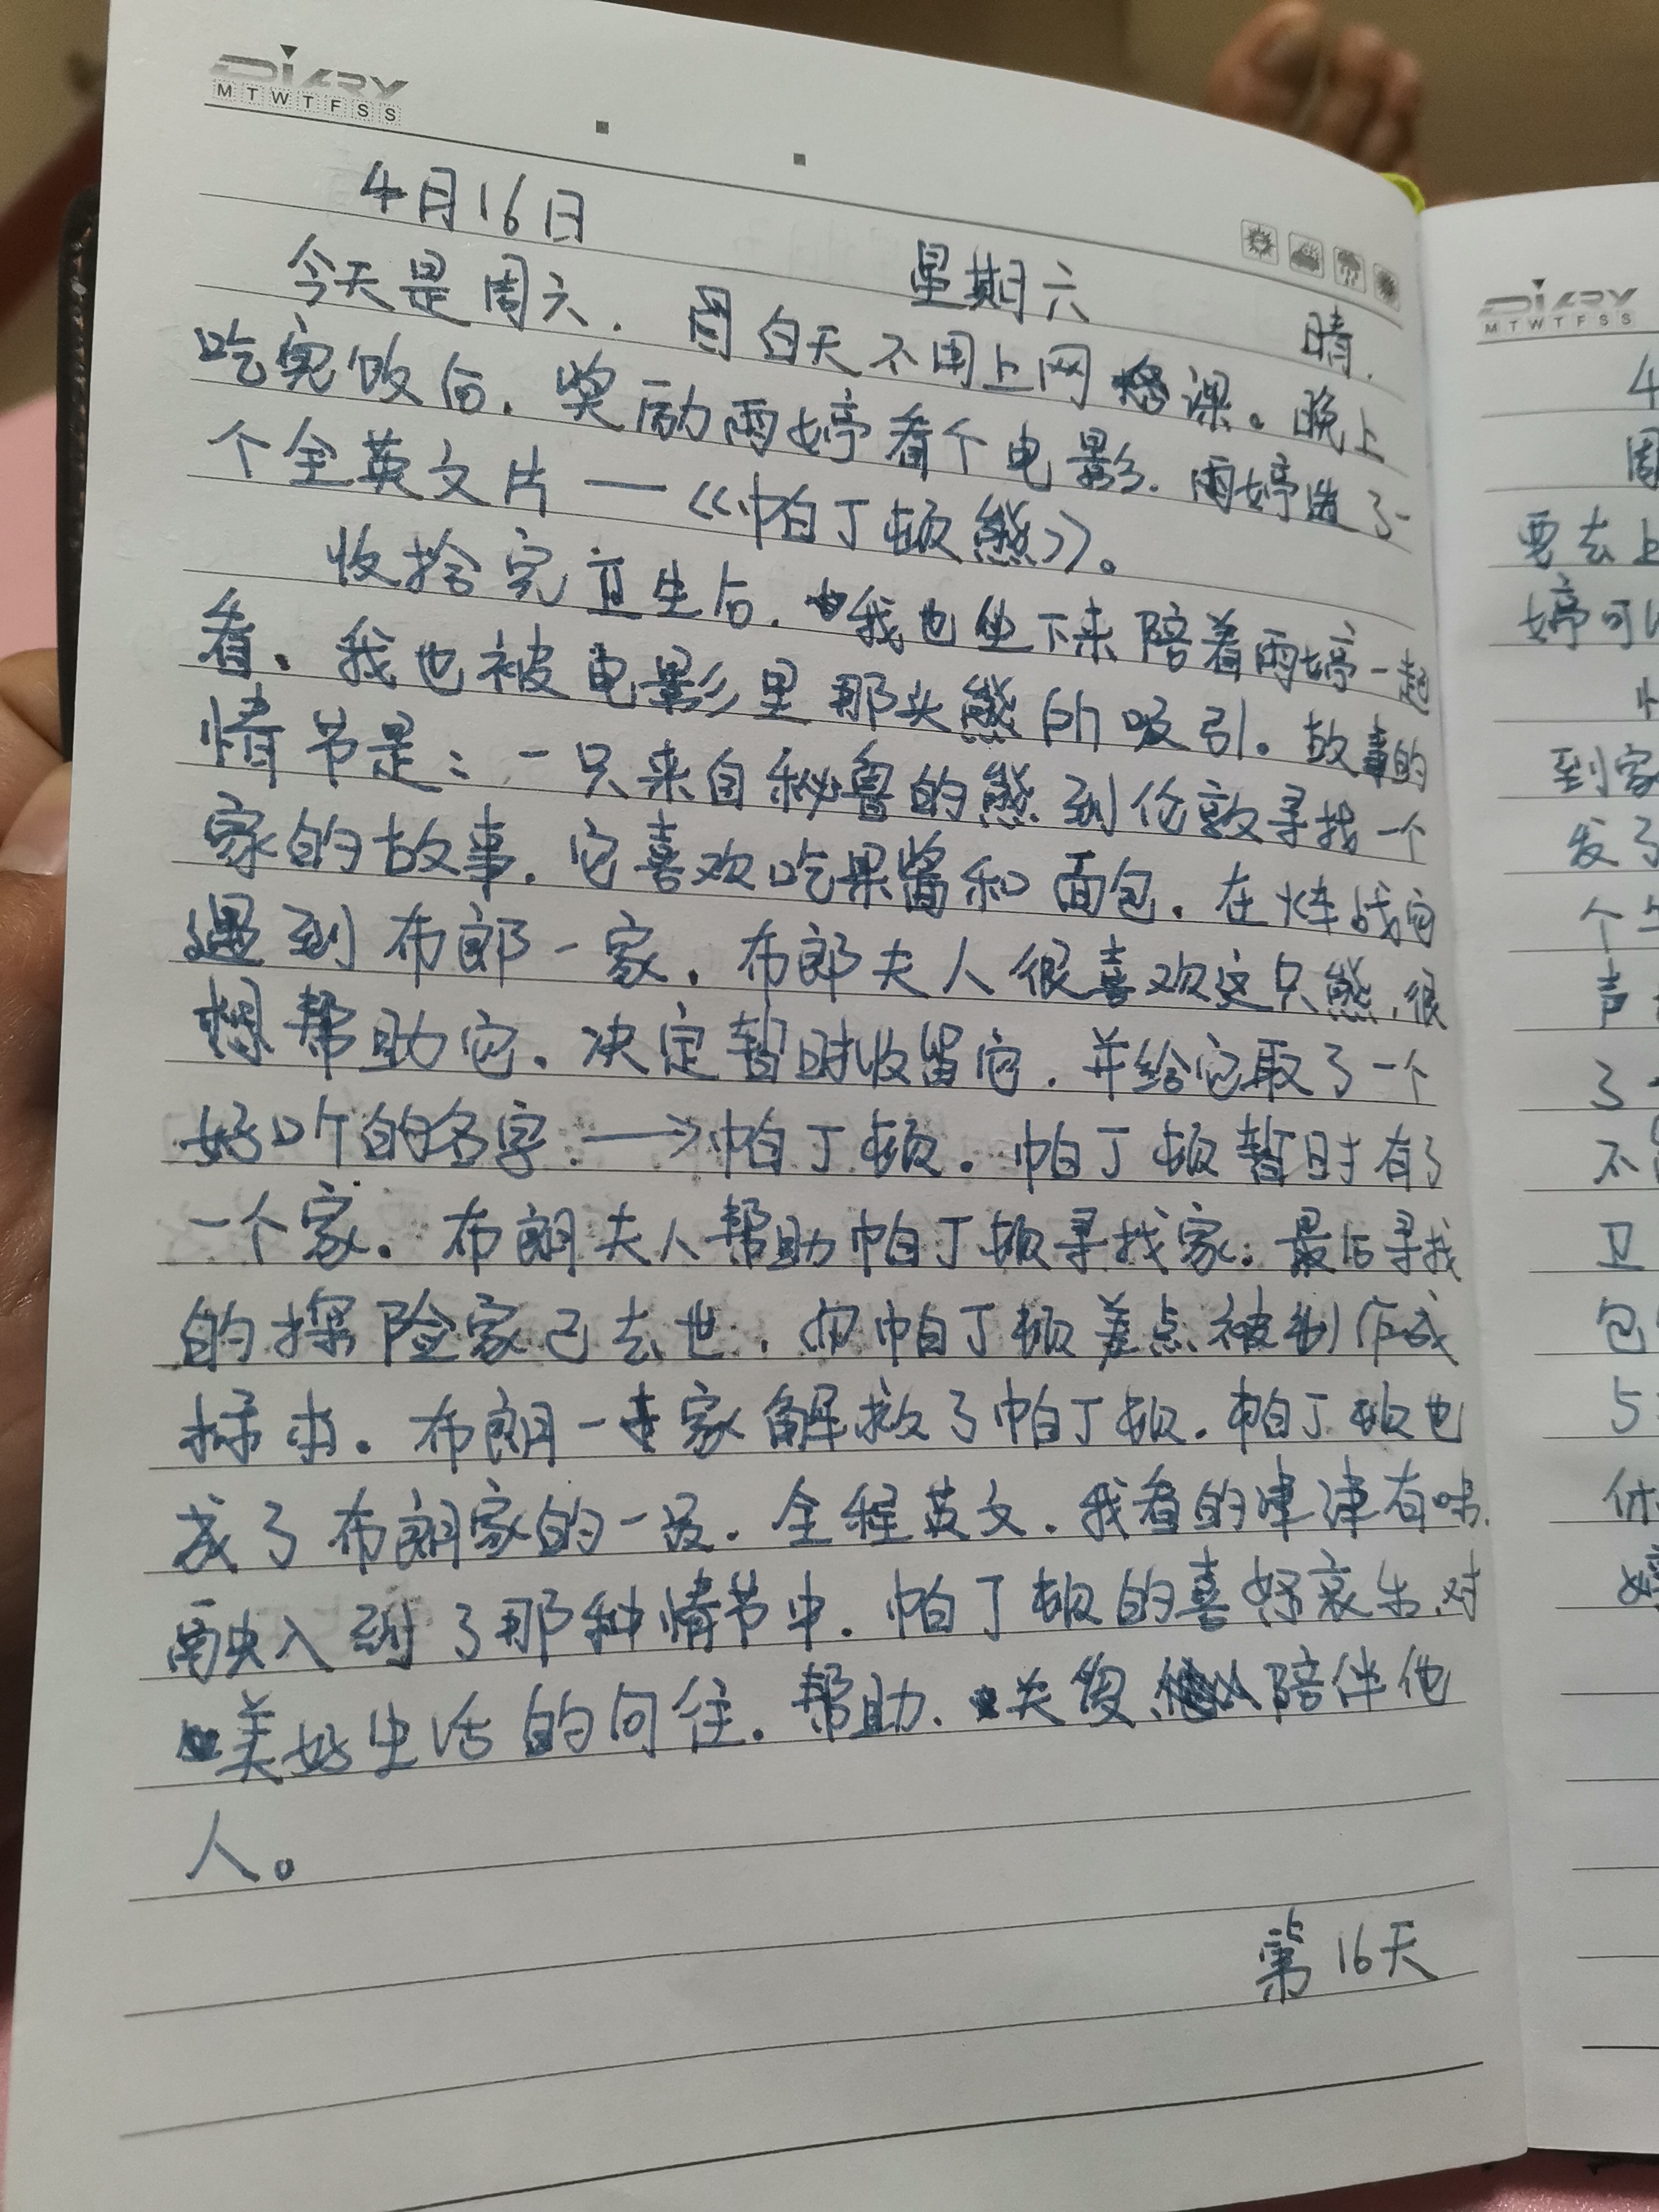 DIARY
M T W T F S S
4月16日 星期六 晴.
今天是周六. 白天不用上网课。晚上
吃完饭后. 奖励雨婷看个电影. 雨婷选了
个全英文片一《帕丁顿熊》。
收拾完卫生后. 我也坐下来陪着雨婷一起
看. 我也被电影里那头熊所吸引。故事的
情节是: 一只来自秘鲁的熊到伦敦寻找一个
家的故事. 它喜欢吃果酱和面包. 在火车站
遇到布郎一家. 布郎夫人很喜欢这只熊. 很
想帮助它. 决定暂时收留它. 并给它取了一个
好听的名字 → 帕丁顿. 帕丁顿暂时有了
一个家. 布朗夫人帮助帕丁顿寻找家. 最后寻找
的探险家已去世. 帕丁顿差点被制作成
标本. 布朗一家解救了帕丁顿. 帕丁顿也
成了布朗家的一员. 全程英文. 我看的津津有味.
融入到了那种情节中. 帕丁顿的喜怒哀乐. 对
美好生活的向往. 帮助. 关 陪伴他
人。
第16天
DIARY
M T W T F S S
4
周
要去上
婷可以
到家
发了
个
声
了
不
卫
包
5
什
婷